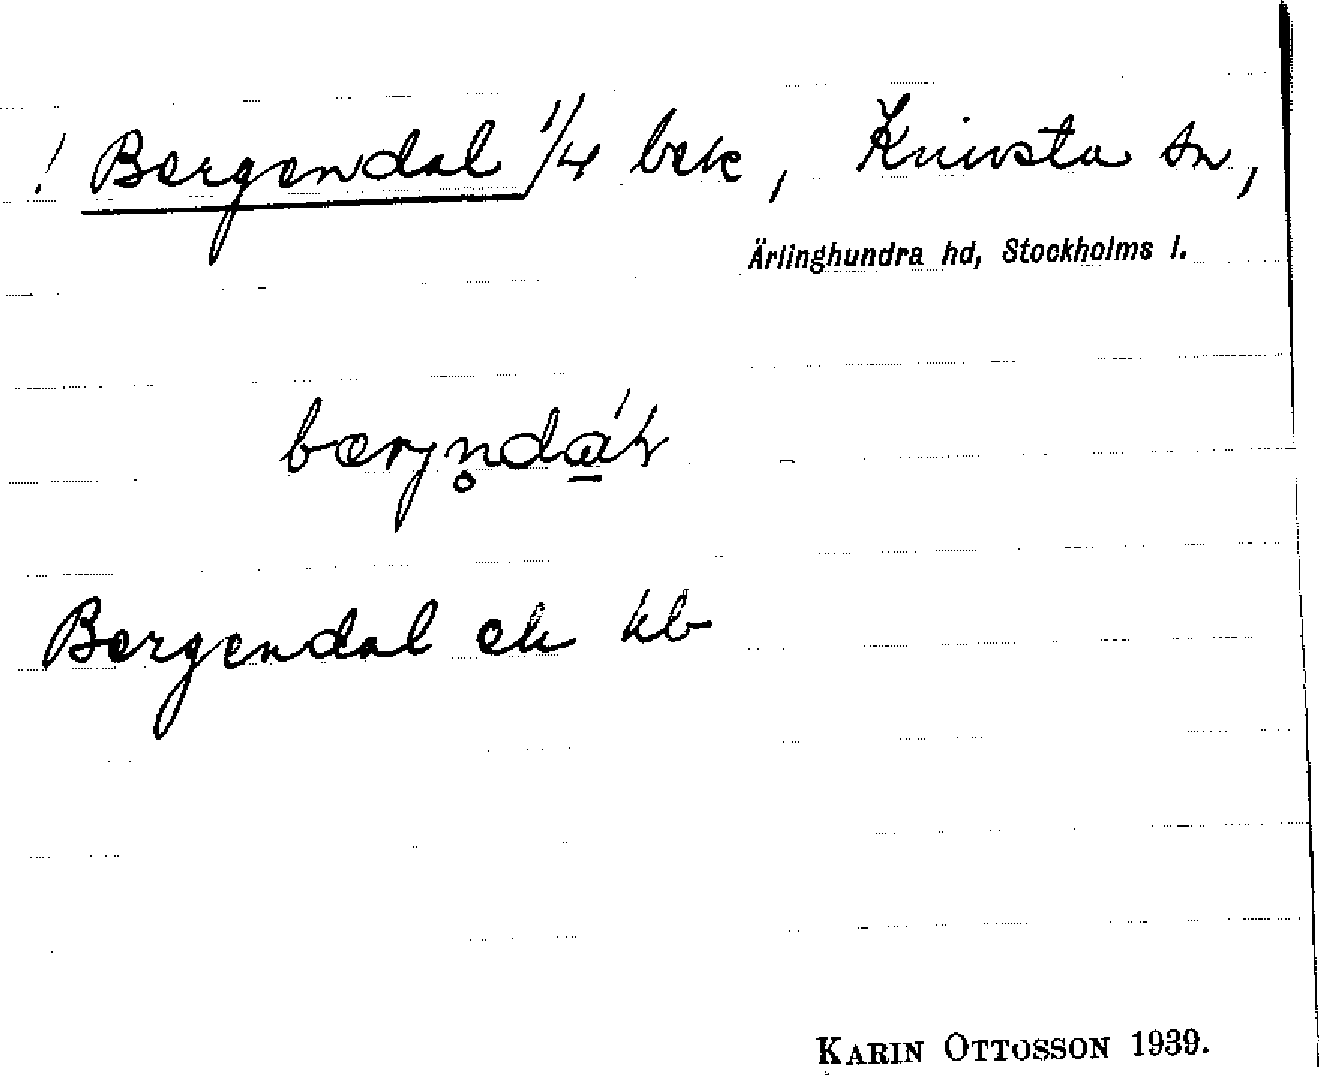 ! Bergendal 1/4 bek, Knivsta sn,
Ärlinghundra hd, Stockholms l.
bærjn̥da̲'ɫ
Bergendal ek kb
KARIN OTTOSSON 1939.